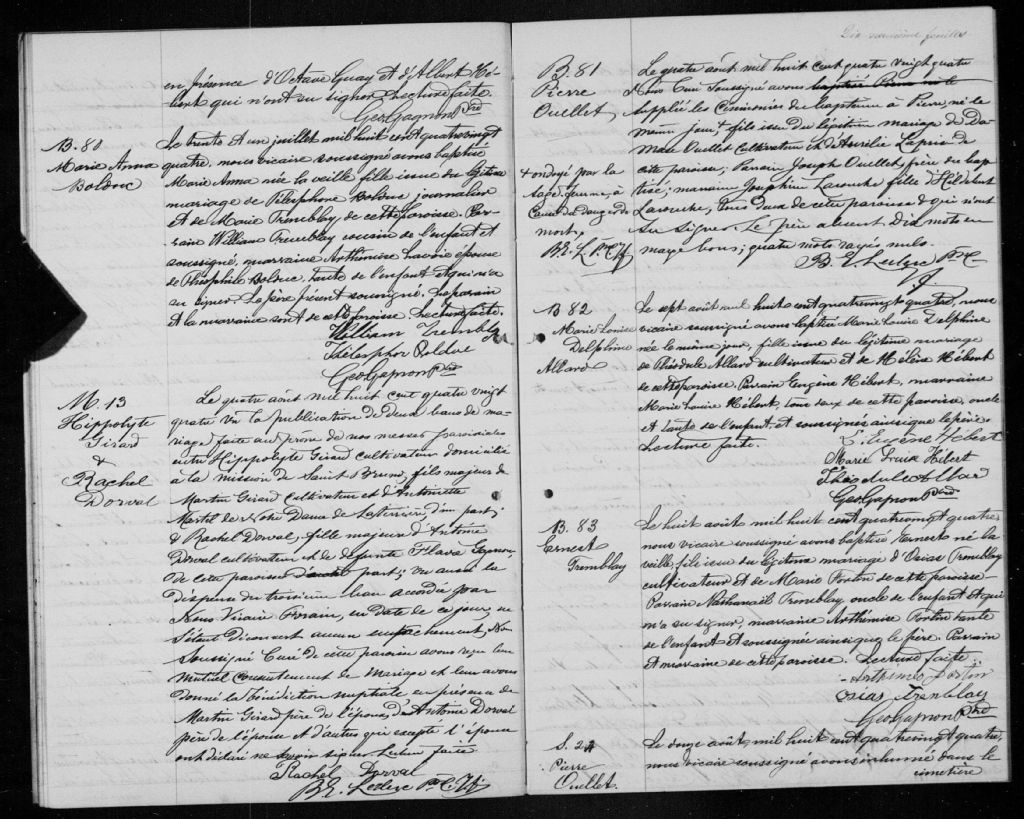 en présence d'Octave Guay et d'Albert Hé-
bert qui n'ont su signer. Lecture faite.
Geo Gagnon Ptre
B. 80
Marie Anna
Bolduc
Le trente et un juillet mil huit cent quatrevingt
quatre, nous vicaire soussigné avons baptisé
Marie Anna née la veille fille issue du légitime
mariage de Télesphore Bolduc journalier
et de Marie Tremblay de cette paroisse. Par-
rain William Tremblay cousin de l'enfant et
soussigné, marraine Arthémise Lavoie épouse
de Théophile Bolduc, tante de l'enfant et qui n'a
su signer. Le père présent soussigné. Le parrain
et la marraine sont de cette paroisse. Lecture faite.
William Tremblay
Télesphor Bolduc
Geo Gagnon Ptre
M. 13
Hippolyte
Girard
&
Rachel
Dorval
Le quatre août mil huit cent quatre vingt
quatre vu la publication de deux bans de ma-
riage faite au prône de nos messes paroissiales
entre Hippolyte Girard cultivateur domicilié
à la mission de Saint Bruno, fils majeur de
Martin Girard cultivateur et d'Antoinette
Martel de Notre Dame de Laterrière d'une part;
& Rachel Dorval, fille majeure d'Antoine
Dorval cultivateur et de défunte Flavie Gagnon
de cette paroisse d'autre part; vu aussi la
dispense du troisième ban accordée par
Nous Vicaire Forain, en date de ce jour, ne
s'étant découvert aucun empêchement, Nous
Soussigné Curé de cette paroisse avons reçu leur
mutuel consentement de mariage et leur avons
donné la bénédiction nuptiale en présence de
Martin Girard père de l'époux, d'Antoine Dorval
père de l'épouse et d'autres qui excepté l'épouse
ont déclaré ne savoir signer. Lecture faite
Rachel Dorval
B. E. Leclerc Ptre
Dix neuvième feuillet
B. 81
Pierre
Ouellet
+ ondoyé par la
sage-femme, à
cause de danger de
mort,
B. E. L. Ptre
Le quatre août mil huit cent quatre vingt quatre
Nous Curé Soussigné avons baptisé Pierre né le
supplié les Cérémonies du baptême à Pierre, né le
même jour, + fils issu du légitime mariage de Da-
mase Ouellet cultivateur et d'Aurélie Lapointe de
cette paroisse; Parrain Joseph Ouellet, frère du bap-
tisé; marraine Joséphine Larouche fille d'Hildebert
Larouche, tous deux de cette paroisse & qui n'ont
su signer. Le père absent. Dix mots en
marge bons; quatre mots rayés nuls.
B. E. Leclerc Ptre
B 82
Marie Louise
Delphine
Allard
Le sept août mil huit cent quatrevingt quatre, nous
vicaire soussigné avons baptisé Marie Louise Delphine
née le même jour, fille issue du légitime mariage
de Théodule Allard cultivateur et de Hélène Hébert
de cette paroisse. Parrain Eugène Hébert, marraine
Marie Louise Hébert, tous deux de cette paroisse, oncle
et tante de l'enfant et soussignés ainsi que le père.
Lecture faite.
Eugène Hébert
Marie Louise Hébert
Théodule Allard
Geo Gagnon Ptre
B. 83
Ernest
Tremblay
Le huit août mil huit cent quatrevingt quatre
nous vicaire soussigné avons baptisé Ernest né la
veille, fils issu du légitime mariage d'Osias Tremblay
cultivateur et de Marie Fortin de cette paroisse.
Parrain Nathanaël Tremblay oncle de l'enfant et qui
n'a su signer, marraine Arthémise Fortin tante
de l'enfant et soussignée ainsi que le père. Parrain
et marraine de cette paroisse. Lecture faite
Arthemise Fortin
Osias Tremblay
Geo Gagnon Ptre
S. 24
Pierre
Ouellet.
Le douze août, mil huit cent quatrevingt quatre,
nous vicaire soussigné avons inhumé dans le
cimetière